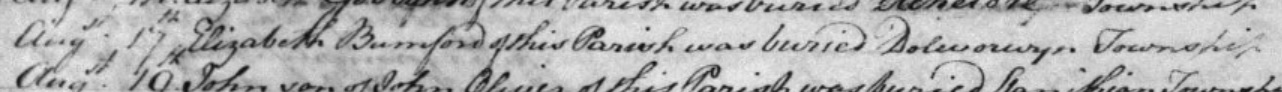 this Parish was buried Township
Augst. 17th Elizabeth Bumford of this Parish was buried Dolevorwyn Township
Augst. 19 John son of John Oliver of this Parish was buried Township